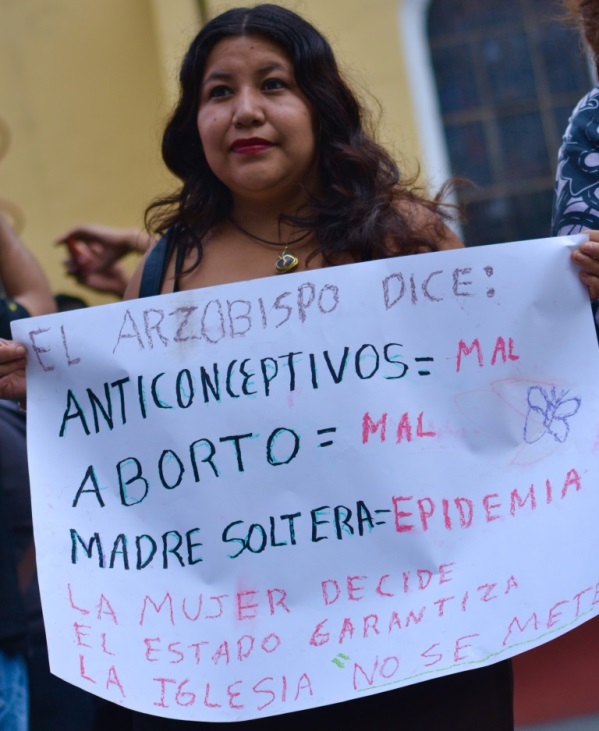 EL ARZOBISPO DICE:
ANTICONCEPTIVOS= MAL
ABORTO = MAL
MADRE SOLTERA=EPIDEMIA
LA MUJER DECIDE
EL ESTADO GARANTIZA
LA IGLESIA "NO SE METE